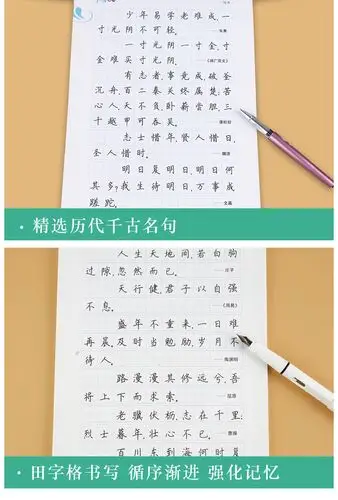 少年易学老难成一
寸光阴不可轻。
——朱熹
一寸光阴一寸金,寸
金难买寸光阴。
——《增广贤文》
有志者,事竟成,破釜
沉舟,百二秦关终属楚;苦
心人,天不负,卧薪尝胆,三
千越甲可吞吴。
——蒲松龄
志士惜年,贤人惜日,
圣人惜时。
——魏源
明日复明日,明日何
其多?我生待明日,万事成
蹉跎。
——文嘉
·精选历代千古名句
人生天地间,若白驹
过隙,忽然而已。
——庄子
天行健,君子以自强
不息。
——《周易》
盛年不重来,一日难
再晨。及时当勉励,岁月不
待人。
——陶渊明
路漫漫其修远兮,吾
将上下而求索。
——屈原
老骥伏枥,志在千里;
烈士暮年,壮心不已。
——曹操
百川东到海,何时复
·田字格书写 循序渐进 强化记忆